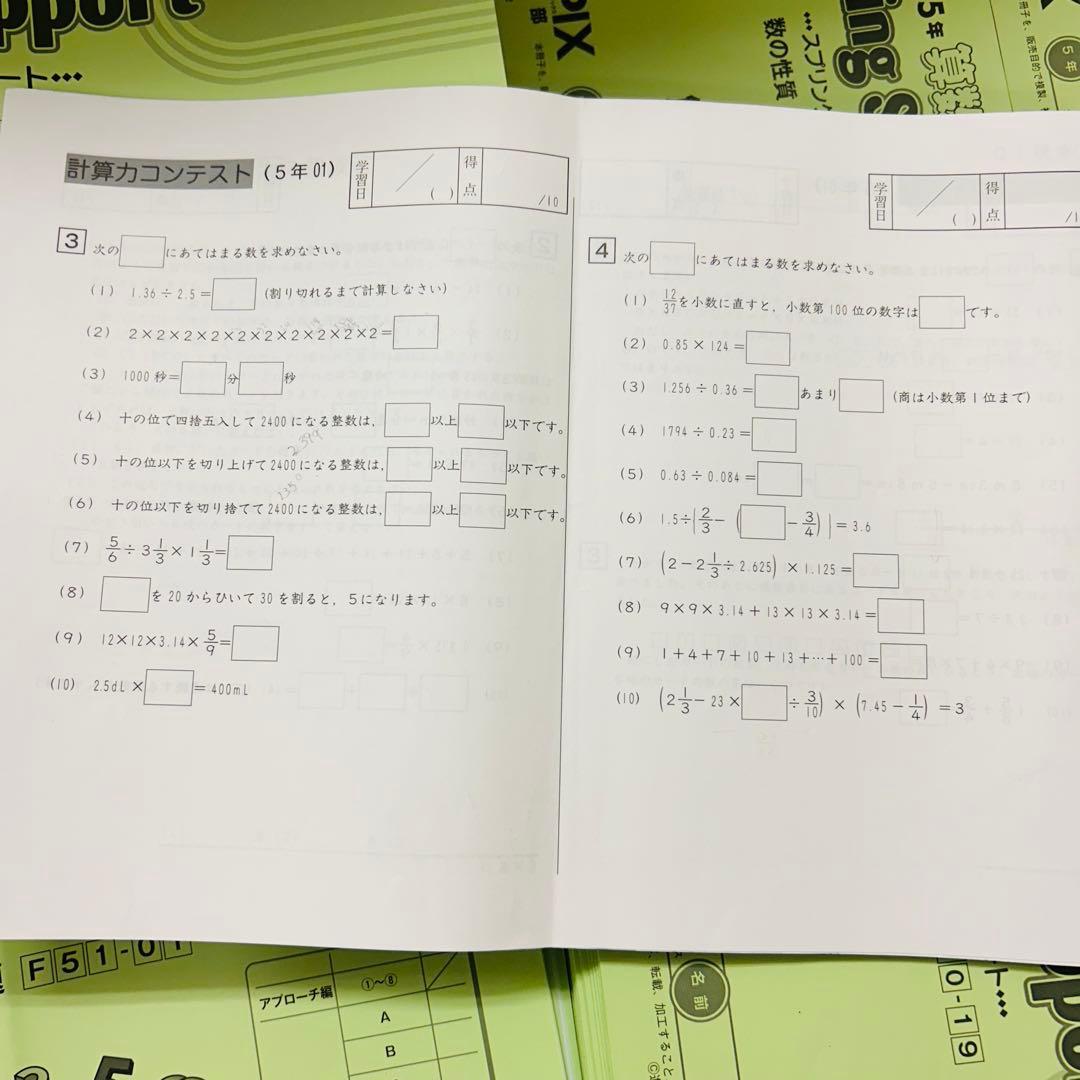 pport
ート…
pIX
部
…スプリング
数の性質
ing S
5年 算数
5年
計算力コンテスト (5年01)
学習日 / ( ) 得点 /10
3 次の□にあてはまる数を求めなさい。
(1) 1.36÷2.5=□ (割り切れるまで計算しなさい)
(2) 2×2×2×2×2×2×2×2×2×2=□
(3) 1000秒=□分□秒
(4) 十の位で四捨五入して2400になる整数は,□以上□以下です。
2399
(5) 十の位以下を切り上げて2400になる整数は,□以上□以下です。
(6) 十の位以下を切り捨てて2400になる整数は,□以上□以下です。
(7) 5/6÷3 1/3×1 1/3=□
(8) □を20からひいて30を割ると, 5になります。
(9) 12×12×3.14×5/9=□
(10) 2.5dL×□=400mL
学習日 / ( ) 得点 /1
4 次の□にあてはまる数を求めなさい。
(1) 12/37を小数に直すと, 小数第100位の数字は□です。
(2) 0.85×124=□
(3) 1.256÷0.36=□あまり□ (商は小数第1位まで)
(4) 1794÷0.23=□
(5) 0.63÷0.084=□
(6) 1.5÷{2/3-(□-3/4)}=3.6
(7) (2-2 1/3÷2.625)×1.125=□
(8) 9×9×3.14+13×13×3.14=□
(9) 1+4+7+10+13+…+100=□
(10) (2 1/3-23×□÷3/10)×(7.45-1/4)=3
F51-01
アプローチ編 ①~⑧
A
B
名前
転載、加工すること
0-19
ート…
ppo